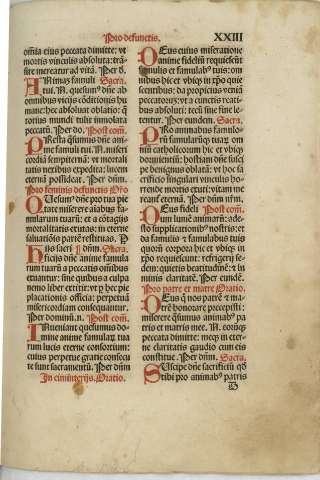 Pro defunctis.
XXIII
omnia eius peccata dimitte: vt
mortis vinculis absoluta: trā
sire mereatur ad vitā. Per d.
Nimas famuli Sacra.
A tui. N. quesumꝰ dn̄e ab
omnibus vicijs ⁊ditionis hu
mane: hec absoluat oblatio: q̄
totius mundi tulit immolata
peccatū. Per do. Post cōm̄.
PResta q̄sumꝰ dn̄e ani
me famuli tui. N. miseri
cordiā sempiternā: vt mortali
tatis nexibus expeditā: lucem
eternā possideat. Per dn̄m.
Pro feminis defunctis Oro
QVesumꝰ dn̄e pro tua pie
tate miserere aīabus fa
mularum tuarū: et a cōtagijs
mortalitatis exutas: in eterne
saluatiōis partē restituas. P
HIjs sacri dn̄m. Sacra.
ficijs dn̄e anime famula
rum tuarū a peccatis oīnibus
exuantur: sine quibus a culpa
nemo liber extitit: vt p hec pie
placationis officia: perpetuā
misericordiam consequantur.
Per dominū. n. Post cōm̄.
INueniant quesumus do
mine anime famularū tua
rum lucis eterne consortium:
cuius perpetue gratie consecu
te sunt sacramentū. Per dn̄m
In cimiterijs. Oratio.
DEus cuius miseratione
anime fideliū requiescunt
famulis et famulabꝰ tuis: om
nibus hic et vbiqꝫ in xp̄o quie
scentibus: da propicius veniā
peccatorū: vt a cunctis reati
bus absoluti: tecū sine fine le
tentur. Per eundem. Sacra.
PRo animabus famulo-
rū famularūqꝫ tuarū: om
nium catholicorum hic et vbiqꝫ
dormientiū: hostiam dn̄e susci
pe benignus oblatā: vt hoc sa
crificio singulari vinculis hor
rende mortis exuti: vitam me
reant eternā. Per dn̄m nr̄m.
DEus fideli Post cōm̄.
um lumē animarū: ade-
sto supplicationibꝰ nostris: et
da famulis ⁊ famulabus tuis
quoꝝ corpora hic et vbiqꝫ in
xp̄o requiescunt: refrigerij se-
dem: quietis beatitudinē: ⁊ lu
minis claritatē. Per eundē.
Pro patre et matre Oratio.
DEus q̄ nos patrē ⁊ ma-
trē honorare precepisti:
miserere q̄sumus animabꝰ pa
tris et matris mee. N. eorūqꝫ
peccata dimitte: meqꝫ cum eis in
eterne claritatis gaudio cum eis
constitue. P dn̄m. Sacra.
SVscipe dn̄e sacrificiū qd̄
tibi pro animabꝰ patris